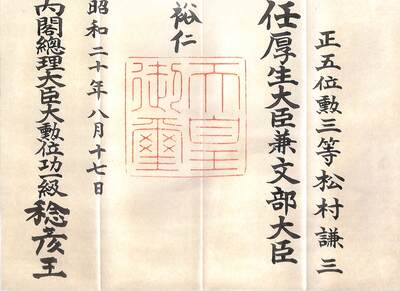 正五位勲三等松村謙三
任厚生大臣兼文部大臣
裕仁
天皇御璽
昭和二十年八月十七日
内閣總理大臣大勲位功一級稔彦王